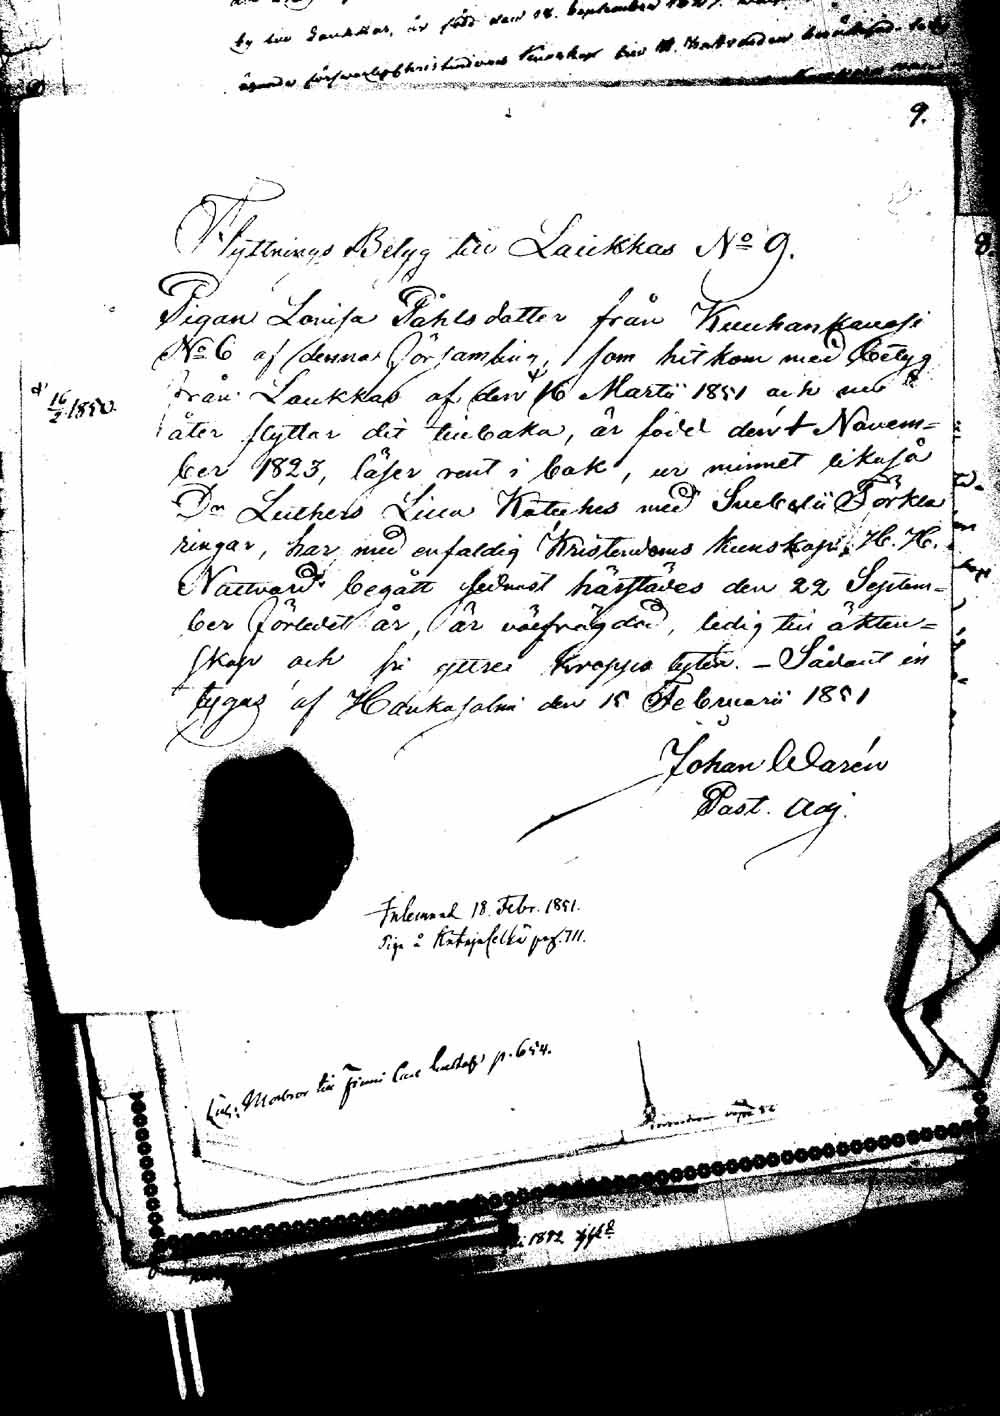 ty till Laukkas, är född den 18. September
9.
Flyttnings Betyg till Laukkas No 9.
8.
Pigan Lovisa Påhlsdotter från Kuuhankavesi
No 6 af denna församling, som hit kom med betyg
från Laukkas af den 16 Martii 1851 och nu
d. 16/2 1850.
åter flyttar dit tillbaka, är född den 4 Novem=
ber 1823, läser rent i bok, ur minnet likaså
Dr Luthers Lilla Kateches med Svebelii Förkla
ringar, har med enfaldig Kristendoms kunskap, H. H.
Nattvard begått sednast härstädes den 22 Septem=
ber förledet år, är välfrägdad, ledig till äkten=
skap och fri yttre kropps lyten. – Sådant in
tygas af Hankasalmi den 15 Februarii 1851
Johan Warén
Past. Adj.
Inlemnad 18. Febr. 1851.
Piga å Katajaselkä pag. 711.
till Finni Carl Gustafs p. 654.
1892